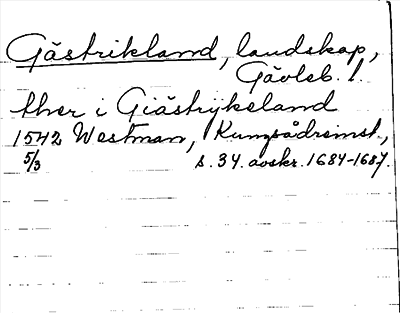 Gästrikland, landskap,
Gävleb. l.
ther i Giästrykeland
1542 Westman, Kungsådreinst.,
5/3 s. 34. avskr. 1684-1687.